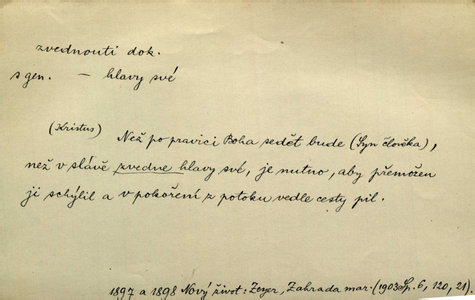 zvednouti dok.
s gen. — hlavy své
(Kristus) Než po pravici Boha sedět bude (Syn člověka),
než v slávě zvedne hlavy své, je nutno, aby přemožen
ji schýlil a v pokoření z potoku vedle cesty pil.
1897 a 1898 Nový život: Zeyer, Zahrada mar. (1903 Sp. 6, 120, 21).